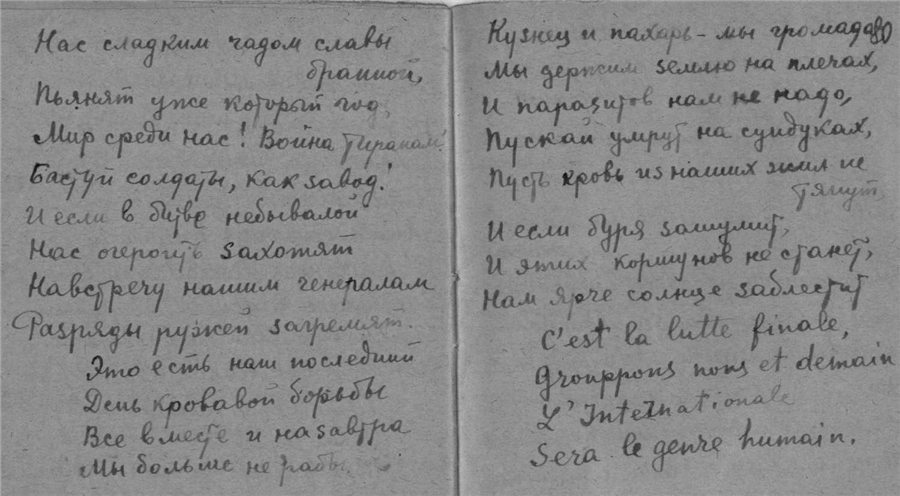 Нас сладким чадом славы
бранной,
Пьянят уже который год,
Мир среди нас! Война тиранам!
Бастуй солдаты, как завод!
И если в битве небывалой
Нас очерогить захотят
Навстречу нашим генералам
Разряды ружей загремят.
Это есть наш последний
День кровавой борьбы
Все вместе и на завтра
Мы больше не рабы.
Кузнец и пахарь – мы громада
Мы держим землю на плечах,
И паразитов нам не надо,
Пускай умрут на сундуках,
Пусть кровь из наших жил не
тянут,
И если буря зашумит,
И этих коршунов не станет,
Нам ярче солнце заблестит
C'est la lutte finale,
Grouppons nous et demain
L'Internationale
Sera le genre humain.